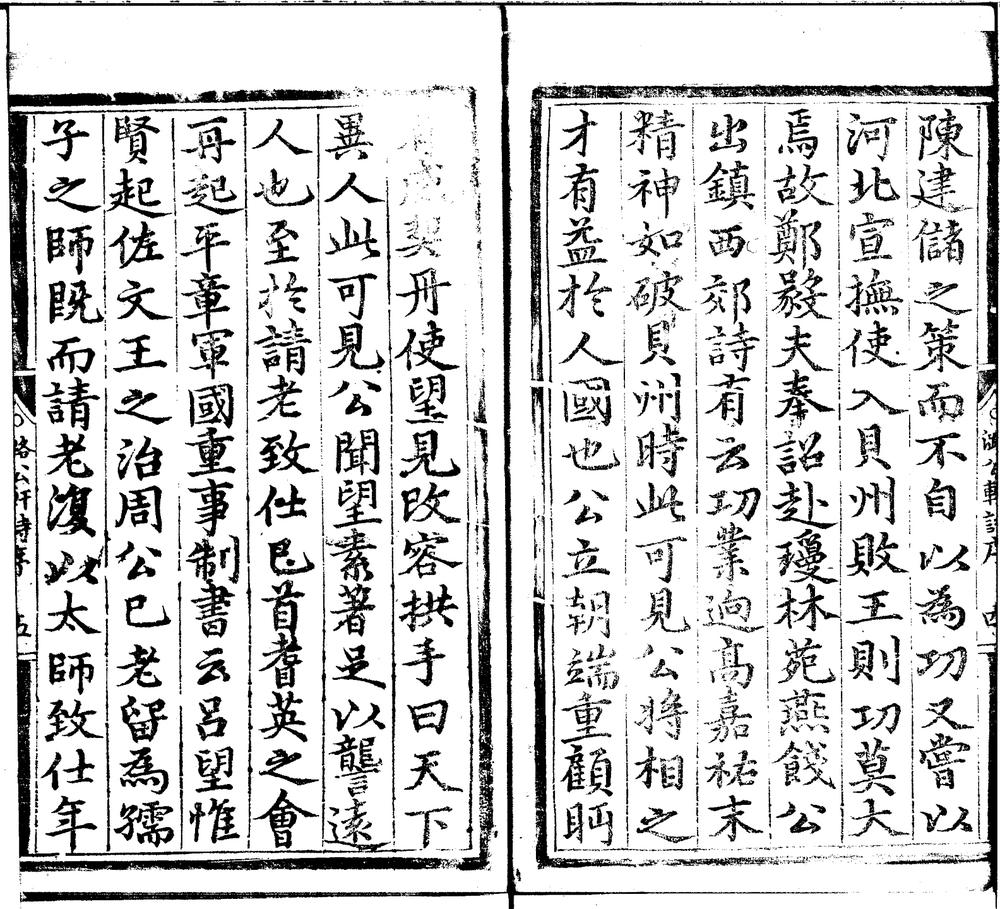 陳建儲之策而不自以為功又嘗以
河北宣撫使入貝州敗王則功莫大
焉故鄭毅夫奉詔赴瓊林苑燕餞公
出鎮西郊詩有云功業逈高嘉祐末
精神如破貝州時此可見公將相之
才有益於人國也公立朝端重顧眄
契丹使望見改容拱手曰天下
異人此可見公聞望素著足以讋遠
人也至於請老致仕皀首耆英之會
再起平章軍國重事制書云呂望惟
賢起佐文王之治周公已老留為孺
子之師既而請老復以太師致仕年